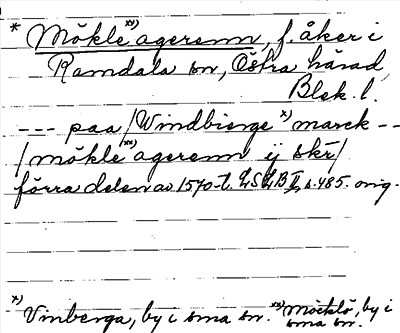 * Mökle xx) agerenn, f. åker i
Ramdala sn, Östra härad,
Blek. l.
--- paa /Windbierge x) marck --
/mökle xx) agerenn ij skr/
förra delen av 1570-t. LSLB II, s. 485. orig.
x) Vinberga, by i sma sn. xx) Möcklö, by i
sma sn.